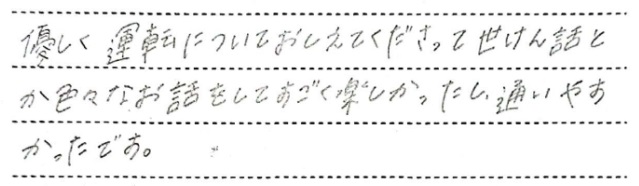 優しく運転についておしえてくださって世けん話と
か色々なお話をしてすごく楽しかったし、通いやす
かったです。